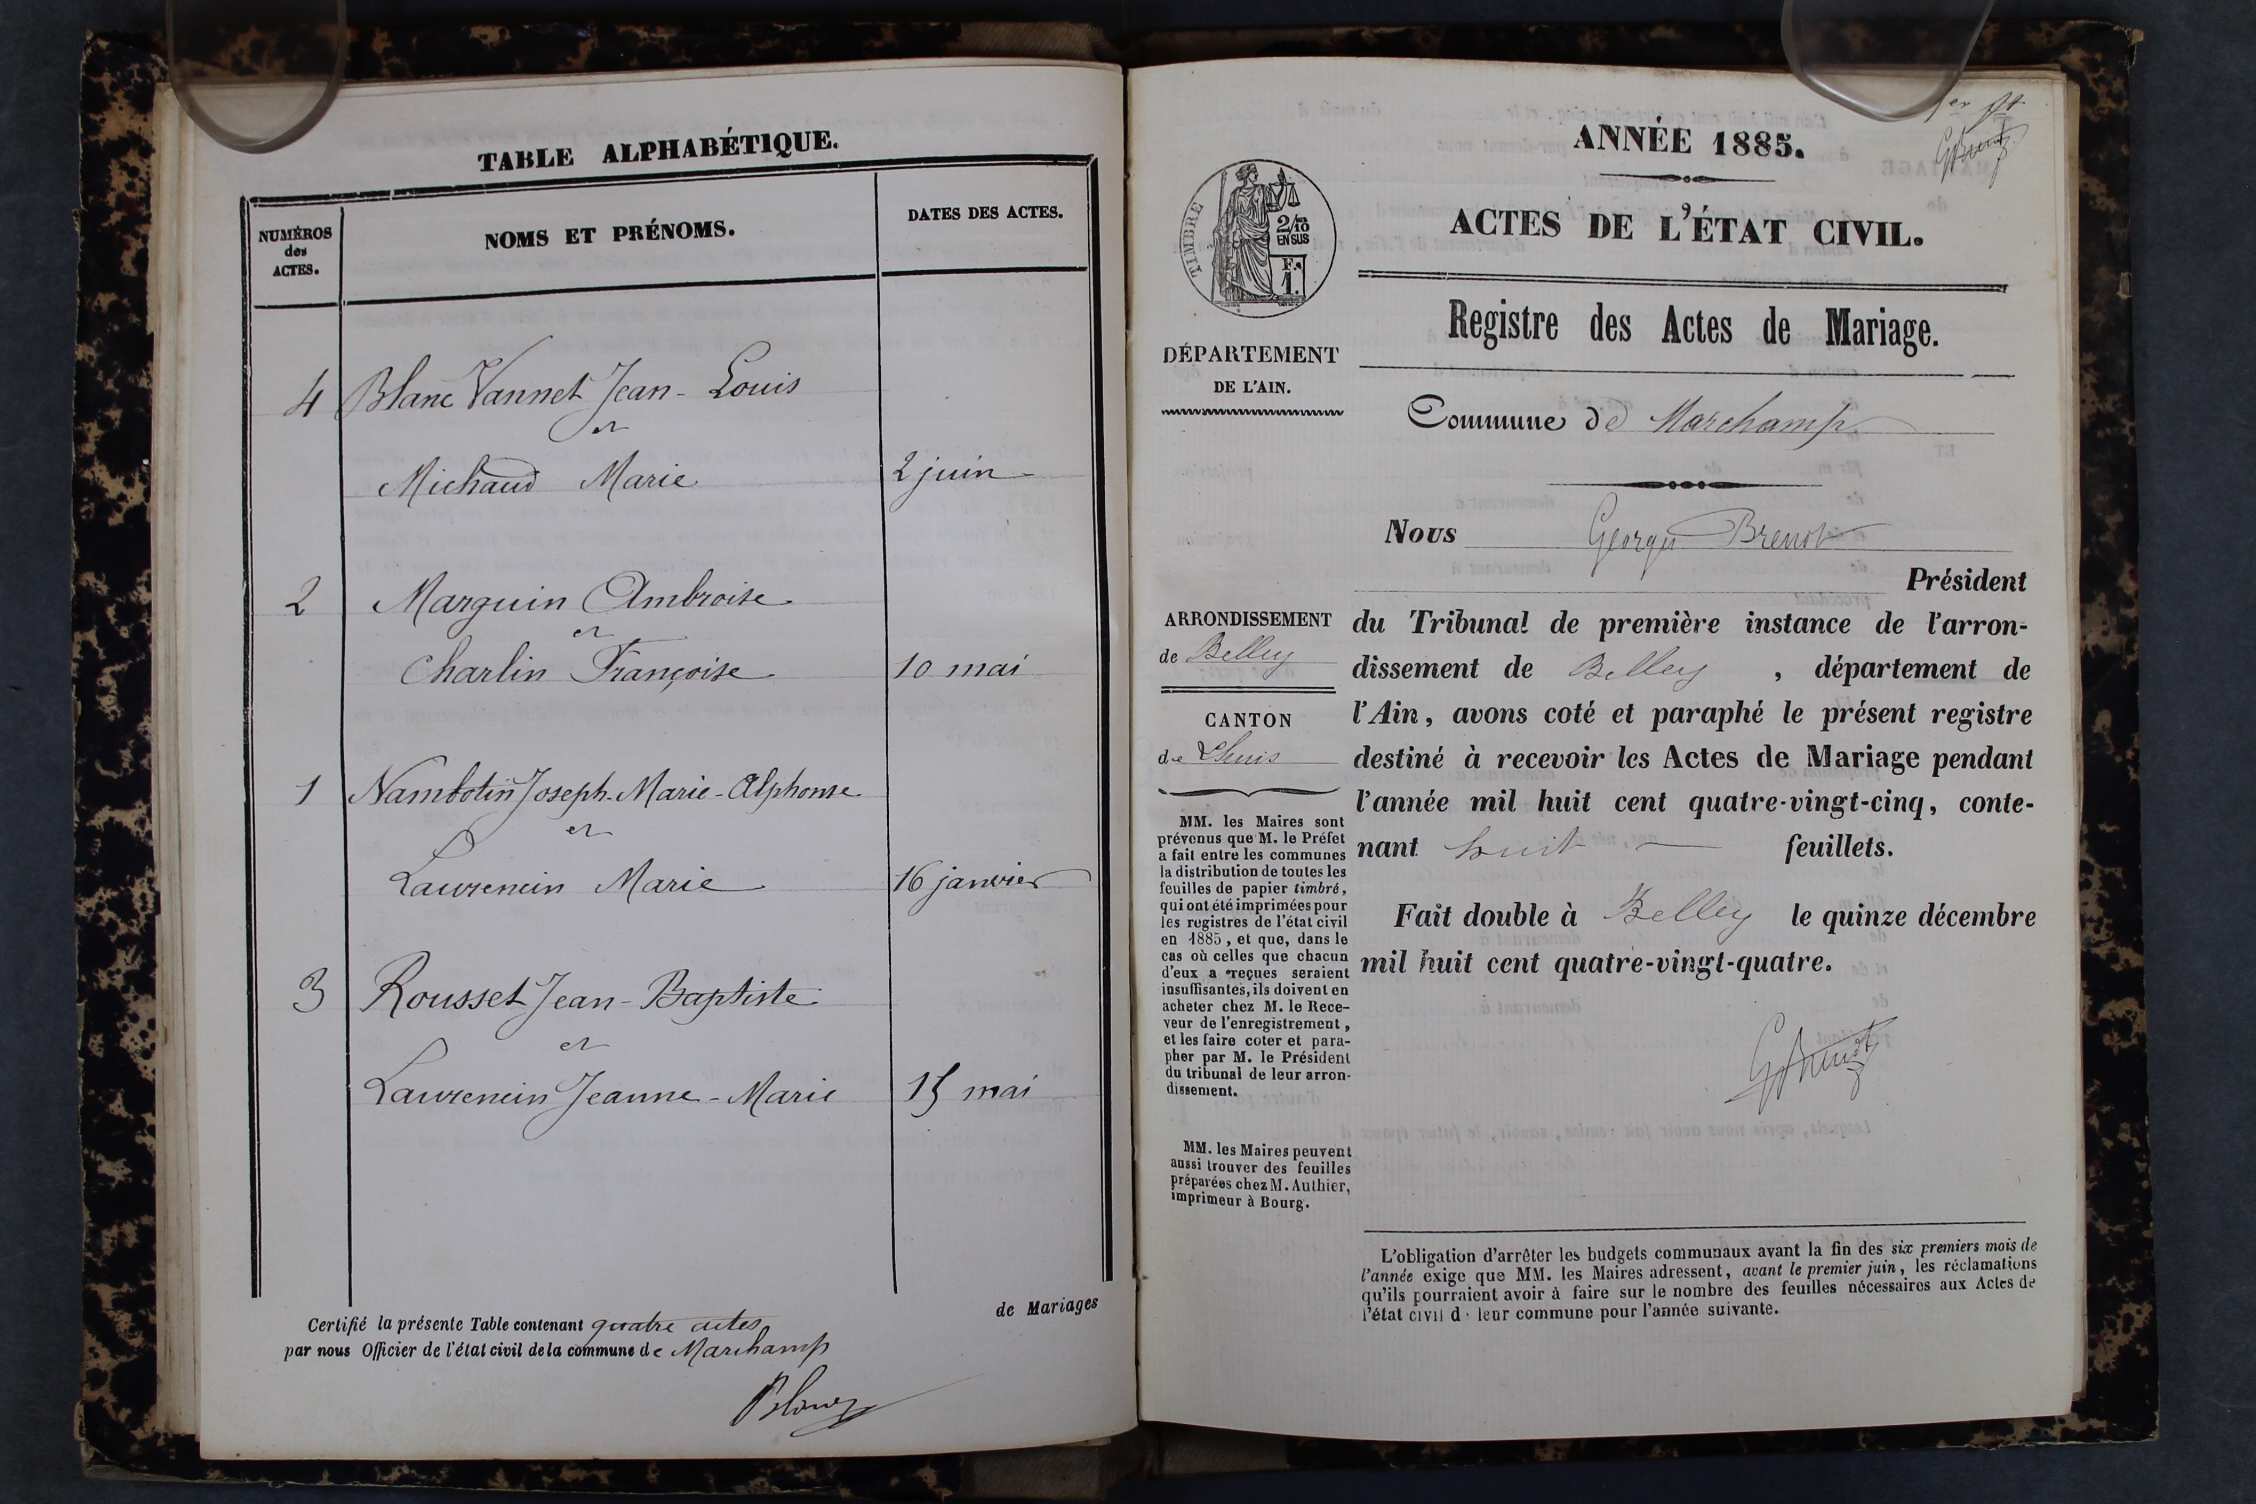 TABLE ALPHABÉTIQUE.
NUMÉROS
des
ACTES.
NOMS ET PRÉNOMS.
DATES DES ACTES.
4 Blanc Vannet Jean-Louis
et
Michaud Marie 2 juin
2 Marguin Ambroise
et
Charlin Françoise 10 mai
1 Nambotin Joseph-Marie-Alphonse
et
Laurencin Marie 16 janvier
3 Rousset Jean-Baptiste
et
Laurencin Jeanne-Marie 15 mai
Certifié la présente Table contenant quatre actes de Mariages
par nous Officier de l'état civil de la commune de Marchamp
ANNÉE 1885.
ACTES DE L'ÉTAT CIVIL.
Registre des Actes de Mariage.
TIMBRE
2/10
EN SUS
1.
DÉPARTEMENT
DE L'AIN.
Commune de Marchamp
Nous Georges Brenot
Président
ARRONDISSEMENT
de Belley
CANTON
de Lhuis
MM. les Maires sont
prévenus que M. le Préfet
a fait entre les communes
la distribution de toutes les
feuilles de papier timbré,
qui ont été imprimées pour
les registres de l'état civil
en 1885, et que, dans le
cas où celles que chacun
d'eux a reçues seraient
insuffisantes, ils doivent en
acheter chez M. le Rece-
veur de l'enregistrement,
et les faire coter et para-
pher par M. le Président
du tribunal de leur arron-
dissement.
MM. les Maires peuvent
aussi trouver des feuilles
préparées chez M. Authier,
imprimeur à Bourg.
du Tribunal de première instance de l'arron-
dissement de Belley, département de
l'Ain, avons coté et paraphé le présent registre
destiné à recevoir les Actes de Mariage pendant
l'année mil huit cent quatre-vingt-cinq, conte-
nant huit feuillets.
Fait double à Belley le quinze décembre
mil huit cent quatre-vingt-quatre.
L'obligation d'arrêter les budgets communaux avant la fin des six premiers mois de
l'année exige que MM. les Maires adressent, avant le premier juin, les réclamations
qu'ils pourraient avoir à faire sur le nombre des feuilles nécessaires aux Actes de
l'état civil d leur commune pour l'année suivante.